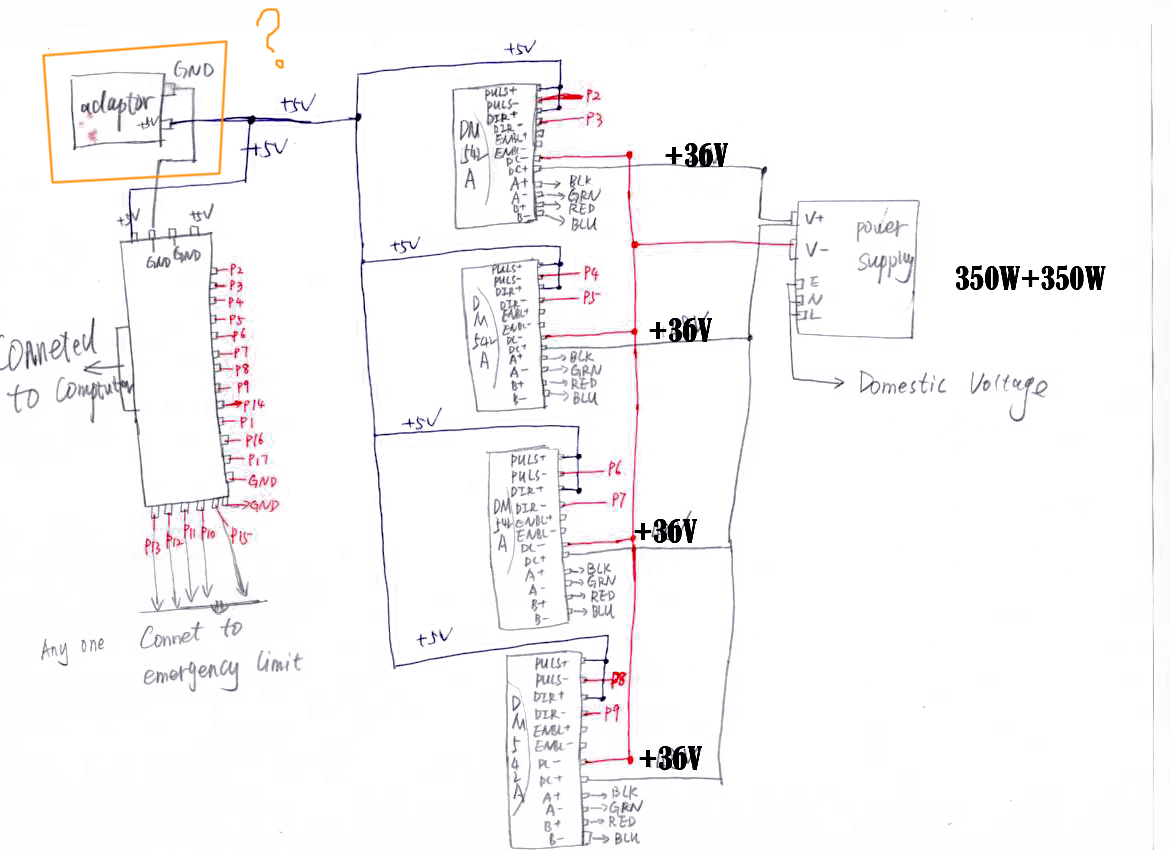 ?
GND
adaptor
+5V
+5V
+5V
+5V
+5V
GND GND
P2
P3
P4
P5
P6
P7
P8
P9
P14
P1
P16
P17
GND
GND
Conneted
to Computer
P13
P12
P11
P10
P15
Any one Connet to
emergency limit
+5V
DM
542
A
PULS+
PULS-
DIR+
DIR-
ENBL+
ENBL-
DC-
DC+
A+
A-
B+
B-
P2
P3
BLK
GRN
RED
BLU
+36V
+5V
D
M
542
A
PULS+
PULS-
DIR+
DIR-
ENBL+
ENBL-
DC-
DC+
A+
A-
B+
B-
P4
P5
BLK
GRN
RED
BLU
+36V
+5V
DM
542
A
PULS+
PULS-
DIR+
DIR-
ENBL+
ENBL-
DC-
DC+
A+
A-
B+
B-
P6
P7
BLK
GRN
RED
BLU
+36V
+5V
D
M
5
4
2
A
PULS+
PULS-
DIR+
DIR-
ENBL+
ENBL-
DC-
DC+
A+
A-
B+
B-
P8
P9
BLK
GRN
RED
BLU
+36V
V+
V-
E
N
L
power
supply
350W+350W
Domestic Voltage